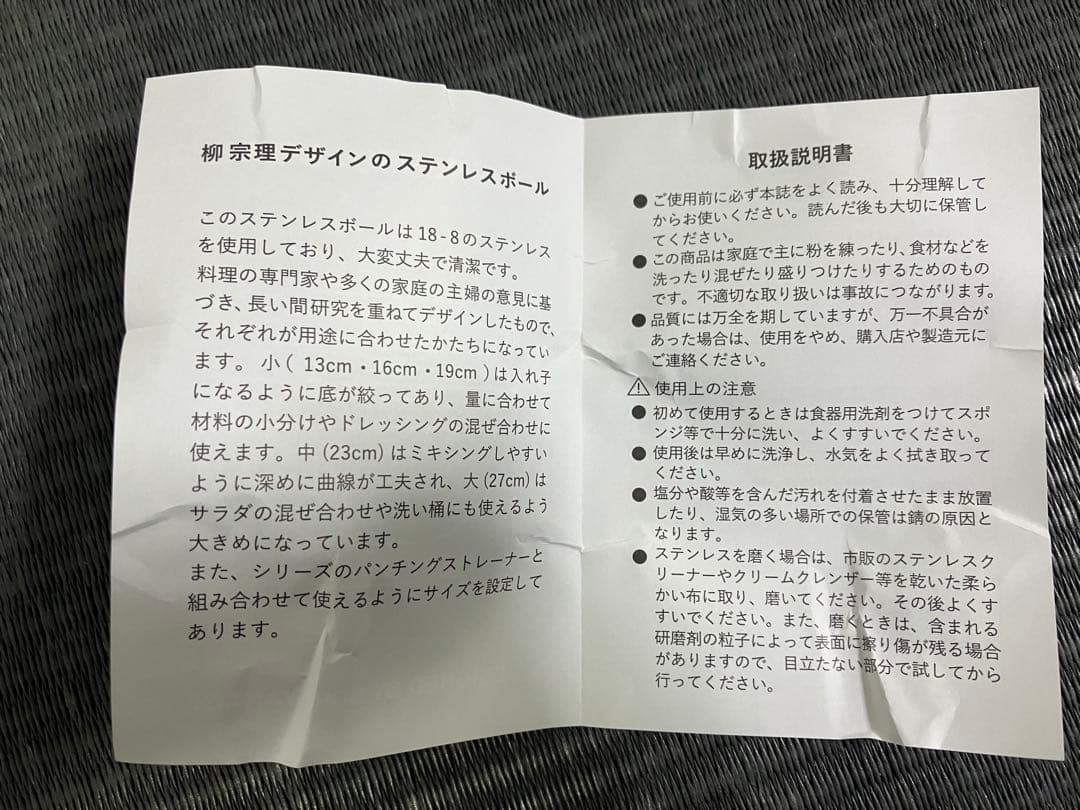 柳 宗理デザインのステンレスボール
このステンレスボールは18-8のステンレス
を使用しており、大変丈夫で清潔です。
料理の専門家や多くの家庭の主婦の意見に基
づき、長い間研究を重ねてデザインしたもので、
それぞれが用途に合わせたかたちになってい
ます。小( 13cm・16cm・19cm )は入れ子
になるように底が絞ってあり、量に合わせて
材料の小分けやドレッシングの混ぜ合わせに
使えます。中(23cm)はミキシングしやすい
ように深めに曲線が工夫され、大(27cm)は
サラダの混ぜ合わせや洗い桶にも使えるよう
大きめになっています。
また、シリーズのパンチングストレーナーと
組み合わせて使えるようにサイズを設定して
あります。
取扱説明書
●ご使用前に必ず本誌をよく読み、十分理解して
からお使いください。読んだ後も大切に保管し
てください。
●この商品は家庭で主に粉を練ったり、食材などを
洗ったり混ぜたり盛りつけたりするためのもの
です。不適切な取り扱いは事故につながります。
●品質には万全を期していますが、万一不具合が
あった場合は、使用をやめ、購入店や製造元に
ご連絡ください。
⚠使用上の注意
●初めて使用するときは食器用洗剤をつけてスポ
ンジ等で十分に洗い、よくすすいでください。
●使用後は早めに洗浄し、水気をよく拭き取って
ください。
●塩分や酸等を含んだ汚れを付着させたまま放置
したり、湿気の多い場所での保管は錆の原因と
なります。
●ステンレスを磨く場合は、市販のステンレスク
リーナーやクリームクレンザー等を乾いた柔ら
かい布に取り、磨いてください。その後よくす
すいでください。また、磨くときは、含まれる
研磨剤の粒子によって表面に擦り傷が残る場合
がありますので、目立たない部分で試してから
行ってください。